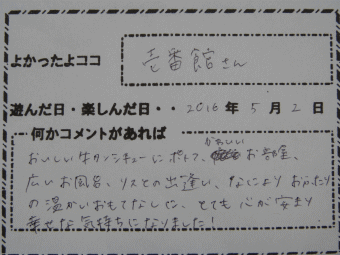 よかったよココ 壱番館さん
遊んだ日・楽しんだ日・・2016年5月2日
何かコメントがあれば
かわいい
おいしい牛タンシチューにポトフ、お部屋、
広いお風呂、リスとの出逢い、なにより おふたり
の温かいおもてなしに、とても心が安まり
幸せな気持ちになりました!